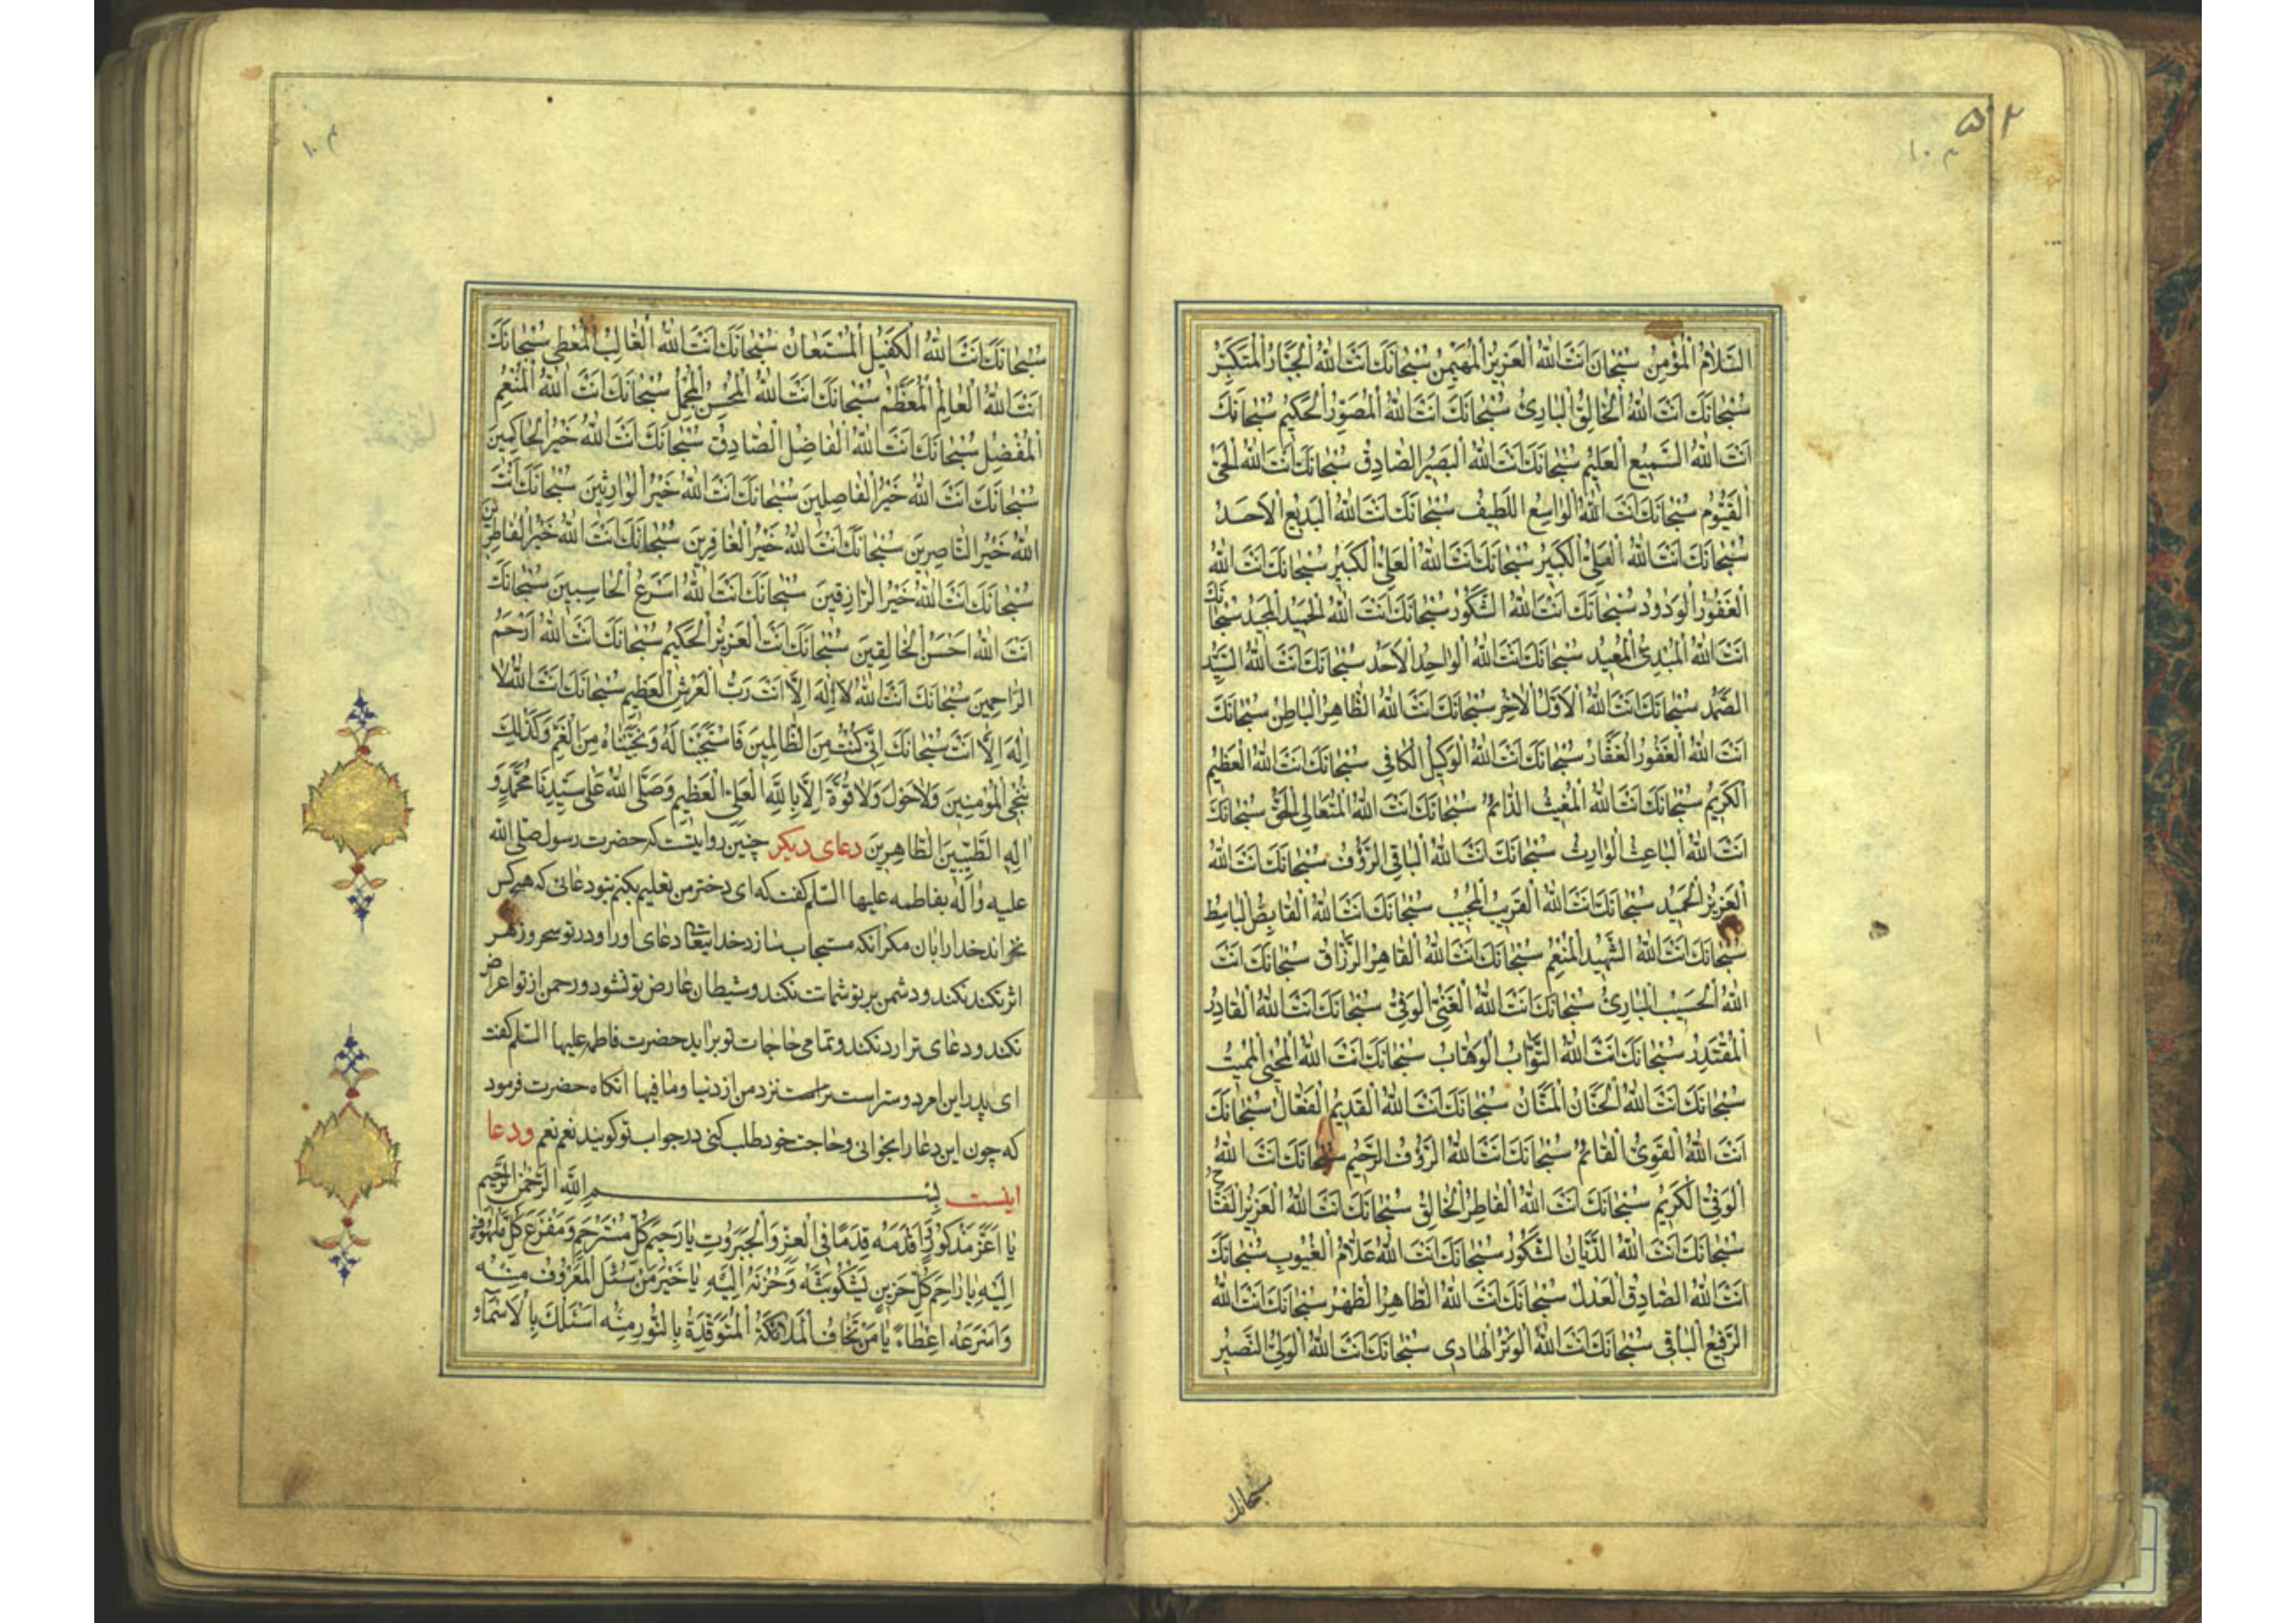 ۵۲
۱۰۳
السَّلامُ الْمُؤْمِنُ سُبْحانَ انَتَ اللهُ الْعَزیزُ الْمُهَیْمِنُ سُبْحانَكَ انَتَ اللهُ الْجَبّارُ الْمُتَكَبِّرُ
سُبْحانَكَ انَتَ اللهُ الْخالِقُ الْبارِئُ سُبْحانَكَ انَتَ اللهُ الْمُصَوِّرُ الْحَكیمُ سُبْحانَكَ
انَتَ اللهُ السَّمیعُ الْعَلیمُ سُبْحانَكَ انَتَ اللهُ الْبَصیرُ الصّادِقُ سُبْحانَكَ انَتَ اللهُ الْحَیُّ
الْقَیُّومُ سُبْحانَكَ انَتَ اللهُ الْواسِعُ اللَّطیفُ سُبْحانَكَ انَتَ اللهُ الْبَدیعُ الْاَحَدُ
سُبْحانَكَ انَتَ اللهُ الْعَلِیُّ الْكَبیرُ سُبْحانَكَ انَتَ اللهُ الْعَلِیُّ الْكَبیرُ سُبْحانَكَ انَتَ اللهُ
الْغَفُورُ الْوَدُودُ سُبْحانَكَ انَتَ اللهُ الشَّكُورُ سُبْحانَكَ انَتَ اللهُ الْحَمیدُ الْمَجیدُ سُبْحانَكَ
انَتَ اللهُ الْمُبْدِئُ الْمُعیدُ سُبْحانَكَ انَتَ اللهُ الْواحِدُ الْاَحَدُ سُبْحانَكَ انَتَ اللهُ السَّیِّدُ
الصَّمَدُ سُبْحانَكَ انَتَ اللهُ الْاَوَّلُ الْاٰخِرُ سُبْحانَكَ انَتَ اللهُ الظّاهِرُ الْباطِنُ سُبْحانَكَ
انَتَ اللهُ الْغَفُورُ الْغَفّارُ سُبْحانَكَ انَتَ اللهُ الْوَكیلُ الْكافی سُبْحانَكَ انَتَ اللهُ الْعَظیمُ
الْكَریمُ سُبْحانَكَ انَتَ اللهُ الْمُغیثُ الدّائِمُ سُبْحانَكَ انَتَ اللهُ الْمُتَعالِی الْحَقُّ سُبْحانَكَ
انَتَ اللهُ الْباعِثُ الْوارِثُ سُبْحانَكَ انَتَ اللهُ الْباقِی الرَّؤُفُ سُبْحانَكَ انَتَ اللهُ
الْعَزیزُ الْحَمیدُ سُبْحانَكَ انَتَ اللهُ الْقَریبُ الْمُجیبُ سُبْحانَكَ انَتَ اللهُ الْقابِضُ الْباسِطُ
سُبْحانَكَ انَتَ اللهُ الشَّهیدُ الْمُنْعِمُ سُبْحانَكَ انَتَ اللهُ الْقاهِرُ الرَّزّاقُ سُبْحانَكَ انَتَ
اللهُ الْحَسیبُ الْبارِئُ سُبْحانَكَ انَتَ اللهُ الْغَنِیُّ الْوَفِیُّ سُبْحانَكَ انَتَ اللهُ الْقادِرُ
الْمُقْتَدِرُ سُبْحانَكَ انَتَ اللهُ التَّوّابُ الْوَهّابُ سُبْحانَكَ انَتَ اللهُ الْمُحْیِی الْمُمیتُ
سُبْحانَكَ انَتَ اللهُ الْحَنّانُ الْمَنّانُ سُبْحانَكَ انَتَ اللهُ الْقَدیمُ الْفَعّالُ سُبْحانَكَ
انَتَ اللهُ الْقَوِیُّ الْقائِمُ سُبْحانَكَ انَتَ اللهُ الرَّؤُفُ الرَّحیمُ سُبْحانَكَ انَتَ اللهُ
الْوَفِیُّ الْكَریمُ سُبْحانَكَ انَتَ اللهُ الْفاطِرُ الْخالِقُ سُبْحانَكَ انَتَ اللهُ الْعَزیزُ الْفَتّاحُ
سُبْحانَكَ انَتَ اللهُ الدَّیّانُ الشَّكُورُ سُبْحانَكَ انَتَ اللهُ عَلّامُ الْغُیُوبِ سُبْحانَكَ
انَتَ اللهُ الصّادِقُ الْعَدْلُ سُبْحانَكَ انَتَ اللهُ الطّاهِرُ الطُّهْرُ سُبْحانَكَ انَتَ اللهُ
الرَّفیعُ الْباقی سُبْحانَكَ انَتَ اللهُ الْوَتْرُ الْهادی سُبْحانَكَ انَتَ اللهُ الْوَلِیُّ النَّصیرُ
سبحانك
۱۰۳
سُبْحانَكَ انَتَ اللهُ الْكَفیلُ الْمُسْتَعانُ سُبْحانَكَ انَتَ اللهُ الْغالِبُ الْمُعْطی سُبْحانَكَ
انَتَ اللهُ الْعالِمُ الْمُعَظَّمُ سُبْحانَكَ انَتَ اللهُ الْمُحْسِنُ الْمُجْمِلُ سُبْحانَكَ انَتَ اللهُ الْمُنْعِمُ
الْمُفْضِلُ سُبْحانَكَ انَتَ اللهُ الْفاضِلُ الصّادِقُ سُبْحانَكَ انَتَ اللهُ خَیْرُ الْحاكِمینَ
سُبْحانَكَ انَتَ اللهُ خَیْرُ الْفاصِلینَ سُبْحانَكَ انَتَ اللهُ خَیْرُ الْوارِثینَ سُبْحانَكَ انَتَ
اللهُ خَیْرُ النّاصِرینَ سُبْحانَكَ انَتَ اللهُ خَیْرُ الْغافِرینَ سُبْحانَكَ انَتَ اللهُ خَیْرُ الْفاطِرینَ
سُبْحانَكَ انَتَ اللهُ خَیْرُ الرّازِقینَ سُبْحانَكَ انَتَ اللهُ اَسْرَعُ الْحاسِبینَ سُبْحانَكَ
انَتَ اللهُ اَحْسَنُ الْخالِقینَ سُبْحانَكَ انَتَ الْعَزیزُ الْحَكیمُ سُبْحانَكَ انَتَ اللهُ اَرْحَمُ
الرّاحِمینَ سُبْحانَكَ انَتَ اللهُ لا اِلٰهَ اِلّا انَتَ رَبُّ الْعَرْشِ الْعَظیمِ سُبْحانَكَ انَتَ اللهُ لا
اِلٰهَ اِلّا انَتَ سُبْحانَكَ اِنّی كُنْتُ مِنَ الظّالِمینَ فَاسْتَجَبْنا لَهُ وَنَجَّیْناهُ مِنَ الْغَمِّ وَكَذٰلِكَ
نُنْجِی الْمُؤْمِنینَ وَلا حَوْلَ وَلا قُوَّةَ اِلّا بِاللهِ الْعَلِیِّ الْعَظیمِ وَصَلَّی اللهُ عَلٰی سَیِّدِنا مُحَمَّدٍ وَ
اٰلِهِ الطَّیِّبینَ الطّاهِرینَ دعای دیگر چنین روایتست که حضرت رسول صلی الله
علیه واله بفاطمه علیها السلم گفت که ای دختر من تعلیم بکنم بتو دعائی که هیچ کس
نخواند خدا را بان مگر آنکه مستجاب سازد خدایتعالی دعای او را و در تو سحر و زهر
اثر نکند نکند و دشمن بر تو شماتت نکند و شیطان عارض تو نشود و رحمن از تو اعراض
نکند و دعای ترا رد نکند و تمامی حاجات تو براید حضرت فاطمه علیها السلم گفت
ای پدر این امر دوستر است نزد من از دنیا وما فیها انگاه حضرت فرمود
که چون این دعا را بخوانی وحاجت خود طلب کنی در جواب تو گویند نعم نعم ودعا
اینست بِسْمِ اللهِ الرَّحْمٰنِ الرَّحیمِ
یا اَعَزَّ مَذْكُورٍ وَاَقْدَمَهُ قِدَمًا فِی الْعِزِّ وَالْجَبَرُوتِ یا رَحیمَ كُلِّ مُسْتَرْحِمٍ وَمَفْزَعَ كُلِّ مَلْهُوفٍ
اِلَیْهِ یا راحِمَ كُلِّ حَزینٍ یَشْكُو بَثَّهُ وَحُزْنَهُ اِلَیْهِ یا خَیْرَ مَنْ سُئِلَ الْمَعْرُوفَ مِنْهُ
وَاَسْرَعَهُ اِعْطاءً یا مَنْ یَخافُ الْمَلائِكَةُ الْمُتَوَقِّدَةُ بِالنُّورِ مِنْهُ اَسْئَلُكَ بِالْاَسْماءِ